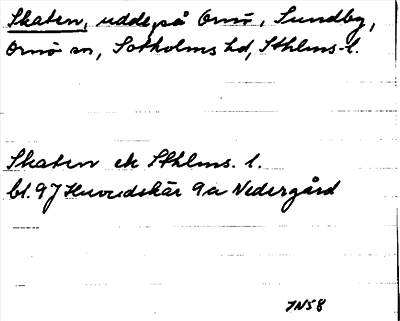 Skaten, udde på Ornö, Sundby,
Ornö sn, Sotholms hd, Sthlms l.
Skaten ek Sthlms. l.
bl. 97 Huvudskär 9a Nedergård
JN58